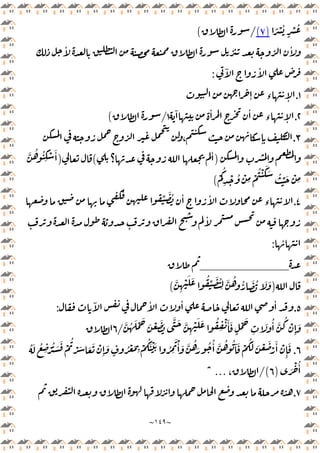 عُسْرٍ يُسْرًا (٧)/سورة الطلاق)
ولأن الزوجة بعد تنزيل سورة الطلاق ممتنعة محصنة من التطليق بالعدة لأجل ذلك
فرض علي الأزواج الآتي:
١.الانتهاء عن إخراجهن من البيوت
٢.الانتهاء عن أن تخرج المرأة من بيتها/آية١/سورة الطلاق)
٣.التكليف بإسكانهن من حيث سكنتم،ولن يتمكن غير الزوج من زوجته في السكن
والمطعم والشرب والسكن (ألم يجعلها الله زوجة في عدتها؟ بلي)قال تعالي(أَسْكِنُوهُنَّ
مِنْ حَيْثُ سَكَنْتُمْ مِنْ وُجْدِكُمْ)
٤.الانتهاء عن محاولات الأزواج أن يُضَيِّقُوا عليهن فيكفي ما بها من ضيق ما وضعها
زوجها فيه من تحسر مستمر لألم وشبح الفراق وترقب حدوثه طول مدة العدة وترقب
انتهائها:
عدة____________ثم طلاق
قال الله(وَلَا تُضَارُّوهُنَّ لِتُضَيِّقُوا عَلَيْهِنَّ)
٥.وقد أوصي الله تعالي خاصة علي أولات الأحمال في نفس الآيات فقال:
وَإِنْ كُنَّ أُولَاتِ حَمْلٍ فَأَنْفِقُوا عَلَيْهِنَّ حَتَّى يَضَعْنَ حَمْلَهُنَّ/٦الطلاق
٦. فَإِنْ أَرْضَعْنَ لَكُمْ فَآتُوهُنَّ أُجُورَهُنَّ وَأْتَمِرُوا بَيْنَكُمْ بِمَعْرُوفٍ وَإِنْ تَعَاسَرْتُمْ فَسَتُرْضِعُ لَهُ
أُخْرَى (٦)/الطلاق،...
٧.هذه مرحلة ما بعد وضع الحامل حملها وإنزالها لهوة الطلاق وبعده التفريق ثم
~١٤٩~